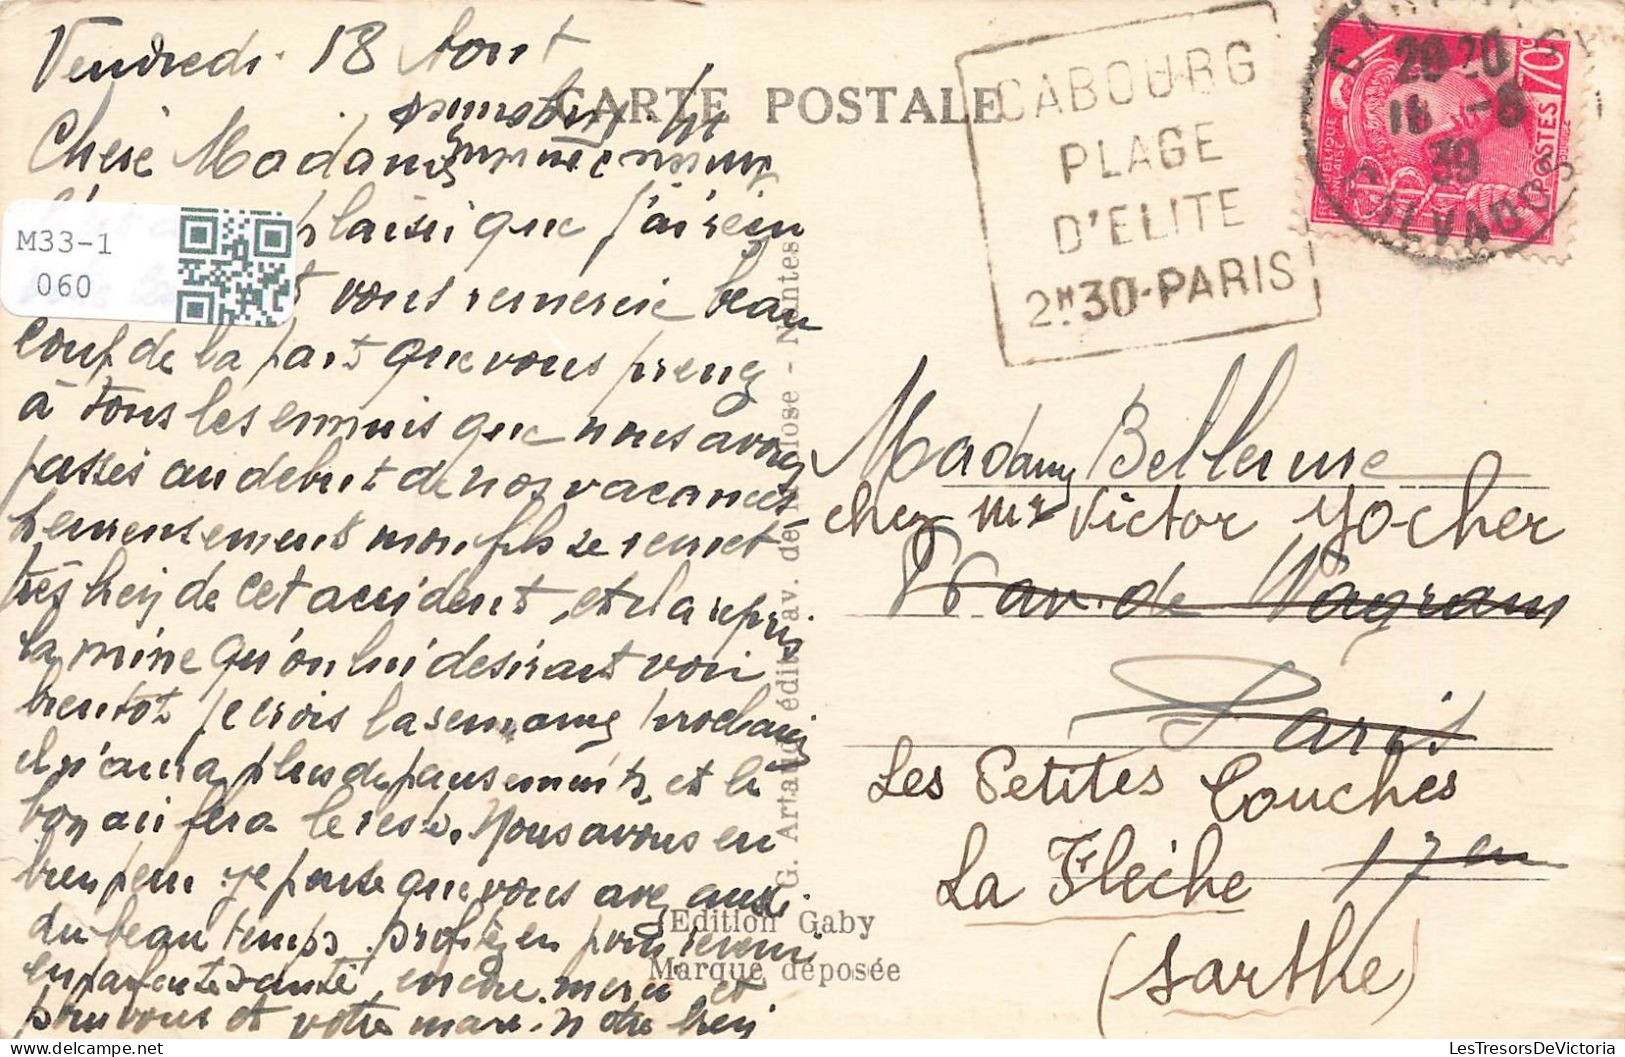 Vendredi 18 Aout
CARTE POSTALE
Chere Madame
plaisir que j'ai reçu
vous remercie beau
coup de la part que vous prenez
à tous les ennuis que nous avons
passés au debut de nos vacances
heureusement mon fils se remet
très bien de cet accident, et il a repris
la mine qu'on lui desirait voir
bientot je crois la semaine prochaine
il n'aura plus de pansements, et le
bon air fera le reste. Nous avons eu
bien peur je pense que vous avez aussi
du beau temps, profitez en pour revenir
en parfaite santé, encore merci et
pour vous et votre mari notre bien
M33-1
060
G. Artaud édit. av. de la Close - Nantes
Edition Gaby
Marque déposée
CABOURG
PLAGE
D'ELITE
2H30-PARIS
20 20
18 -8
39
CALVADOS
70c
POSTES
Madame Bellerme
chez Mr Victor Yocher
av. de Wagram
Paris
Les Petites Couches
17 em
La Flèche
(Sarthe)
LesTresorsDeVictoria.com